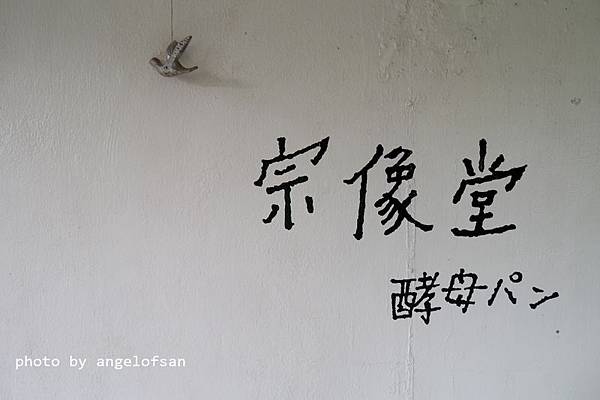 宗像堂
酵母パン
photo by angelofsan